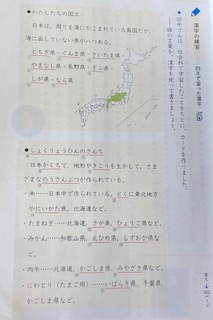 漢字の練習
四年で習った漢字
田中さんは、社会科で学習したことをもとに、カードを作りました。
――線の言葉を、漢字を使って書きましょう。
●わたしたちの国土
日本は、周りを海にかこまれている島国だが、
海に面していない県が八つある。
とちぎ県・ぐんま県・さいたま県・
やまなし県・長野県・ぎふ県・
しが県・なら県
●しょくりょうひんのさんち
日本かくちで、地形やきこうを生かして、さま
ざまなのうさんぶつが作られている。
・米……日本中で作られている。とくに東北地方
やにいがた県、北海道など。
・たまねぎ……北海道、さが県、ひょうご県など。
・みかん……和歌山県、えひめ県、しずおか県な
ど。
・肉牛……北海道、かごしま県、みやざき県など。
・にわとり（たまご用）……いばらき県、千葉県、
かごしま県など。